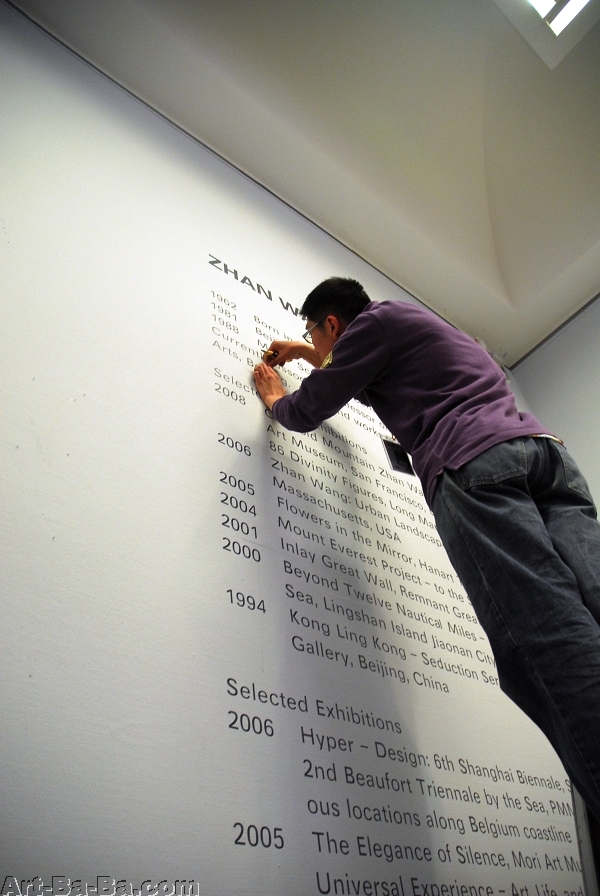 ZHAN W
1962 Born in
1981
1988
Current
Arts, B
Selec
2008
and work
Exhibitions
Mountain Zhan Wa
Art Museum, San Francisco,
2006 86 Divinity Figures, Long Ma
Zhan Wang: Urban Landscap
Massachusetts, USA
2005 Flowers in the Mirror, Hanart
2004 Mount Everest Project – to the S
2001 Inlay Great Wall, Remnant Grea
2000 Beyond Twelve Nautical Miles –
Sea, Lingshan Island Jiaonan City
1994 Kong Ling Kong – Seduction Ser
Gallery, Beijing, China
Selected Exhibitions
2006 Hyper – Design: 6th Shanghai Biennale, S
2nd Beaufort Triennale by the Sea, PMM
ous locations along Belgium coastline
2005 The Elegance of Silence, Mori Art Mu
Universal Experience – Art, Life and
Art-Ba-Ba.com